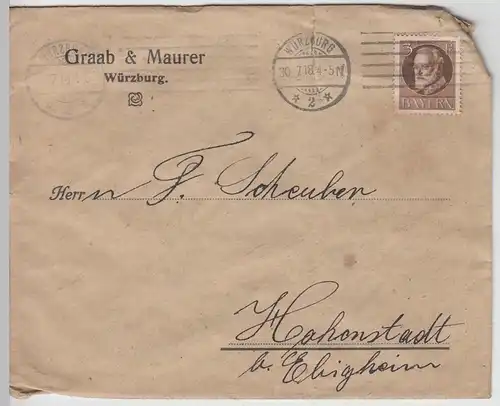 Graab & Maurer
Würzburg.
WÜRZBURG
30.7.18. 4-5N
* 2 *
3 Pf
BAYERN
Herrn F. Scheuber
Hohenstadt
b. Ebigheim